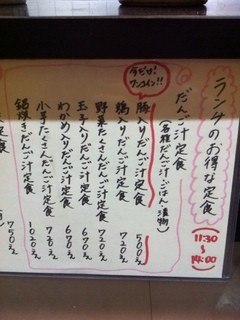 ランチのお得な定食
(11:30〜14:00)
だんご汁定食
(各種だんご汁・ごはん・漬物)
今だけ!ワンコイン!!
豚入りだんご汁定食 500えん
鶏入りだんご汁定食 720えん
野菜たくさんだんご汁定食 720えん
玉子入りだんご汁定食 670えん
わかめ入りだんご汁定食 670えん
小芋たくさんだんご汁定食 720えん
鍋焼きだんご汁定食 1020えん
定食 750えん